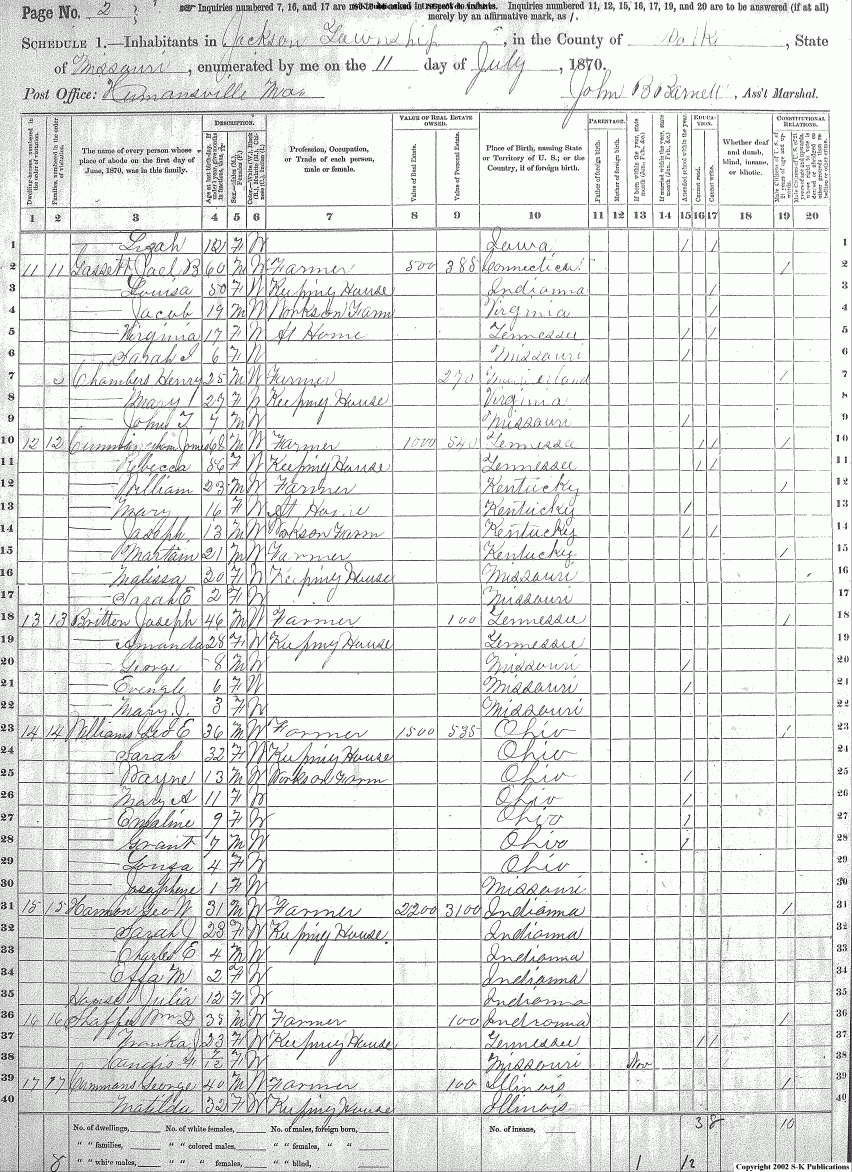 Page No. 2
Inquiries numbered 7, 16, and 17 are not to be asked in respect to infants. Inquiries numbered 11, 12, 15, 16, 17, 19, and 20 are to be answered (if at all)
merely by an affirmative mark, as /.
SCHEDULE 1.—Inhabitants in Jackson Township, in the County of Polk, State
of Missouri, enumerated by me on the 11 day of July, 1870.
Post Office: Humansville Mo John B Barnett, Ass't Marshal.
DESCRIPTION. VALUE OF REAL ESTATE OWNED. PARENTAGE. EDUCATION. CONSTITUTIONAL RELATIONS.
Dwelling-houses, numbered in the order of visitation.
Families, numbered in the order of visitation.
The name of every person whose place of abode on the first day of June, 1870, was in this family.
Profession, Occupation, or Trade of each person, male or female.
Value of Real Estate.
Value of Personal Estate.
Place of Birth, naming State or Territory of U. S.; or the Country, if of foreign birth.
Father of foreign birth.
Mother of foreign birth.
Attended school within the year.
Cannot read.
Cannot write.
Whether deaf and dumb, blind, insane, or idiotic.
1 2 3 4 5 6 7 8 9 10 11 12 13 14 15 16 17 18 19 20
1 F W Iowa / / 1
2 11 11 Joel B 60 M W Farmer 500 388 Connecticut / 2
3 Louisa 50 F W Keeping House Indiana / 3
4 Jacob 19 M W Works on Farm Virginia / 4
5 Virginia 17 F W At Home Tennessee / / 5
6 Sarah J 6 F W Missouri / 6
7 Chambers Henry 25 M W Farmer 270 7
8 Mary 27 F W Keeping House Virginia / 8
9 John 7 M W Missouri / 9
10 12 12 Cunningham James 68 M W Farmer 1000 540 Tennessee / / / 10
11 Rebecca 56 F W Keeping House Tennessee / / 11
12 William 23 M W Farmer Kentucky / 12
13 Mary 16 F W At Home Kentucky / 13
14 Joseph 13 M W Works on Farm Kentucky / / 14
15 21 M W Farmer Kentucky / 15
16 Malissa 20 F W Keeping House Missouri 16
17 Sarah E 2 F W Missouri 17
18 13 13 Britton Joseph 46 M W Farmer 100 Tennessee / 18
19 Amanda 28 F W Keeping House Tennessee 19
20 George 8 M W Missouri / 20
21 6 F W Missouri / 21
22 Mary J. 3 F W Missouri 22
23 14 14 Williams Geo E 36 M W Farmer 1500 535 Ohio / 23
24 Sarah 32 F W Keeping House Ohio 24
25 Wayne 13 M W Works on Farm Ohio / 25
26 Mary A 11 F W Ohio / 26
27 Emaline 9 F W Ohio / 27
28 Grant 7 M W Ohio / 28
29 Louisa 4 F W Ohio 29
30 Josephene 1 F W Missouri 30
31 15 15 Harmon Geo W 31 M W Farmer 2200 3100 Indianna / 31
32 Sarah J 23 F W Keeping House Indianna 32
33 Charles E 4 M W Indianna 33
34 Effa M 2 F W Indianna 34
35 Julia 12 F W Indianna 35
36 16 16 Wm D 38 M W Farmer 100 Indianna / 36
37 23 F W Keeping House Tennessee / / 37
38 7/12 F W Missouri Nov 38
39 17 17 George 40 M W Farmer 100 Illinois / 39
40 Matilda 32 F W Keeping House Illinois 40
No. of dwellings, No. of white females, No. of males, foreign born, No. of insane, 3 8 10
" " families, " " colored males, " " females, " "
8 " " white males, " " " females, " " blind, 1 12
Copyright 2002 S-K Publications